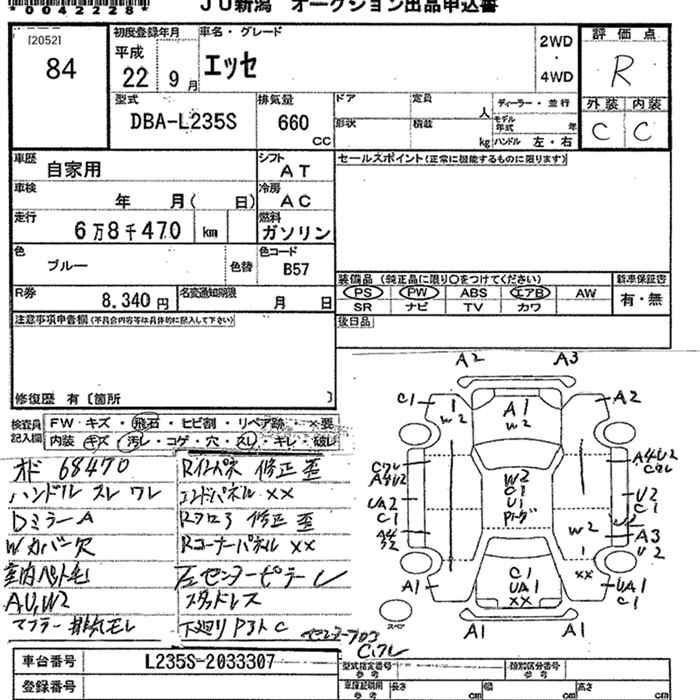 *0042228*
JU新潟 オークション出品申込書
[2052]
84
初度登録年月
平成
22 9月
車名・グレード
エッセ
2WD
・
4WD
評価点
R
外装 内装
C C
型式
DBA-L235S
排気量
660
CC
ドア
定員
人
形状
積載
kg
ディーラー・並行
モデル年式 年
ハンドル 左・右
車歴
自家用
シフト
AT
車検
年 月( 日)
冷房
AC
走行
6万8千470 km
燃料
ガソリン
色
ブルー
色替
色コード
B57
R券
8,340円
名変通知期限
月 日
セールスポイント(正常に機能するものに限ります)
装備品(純正品に限り○をつけてください)
PS PW ABS エアB AW
SR ナビ TV カワ
新車保証書
有・無
後日品
注意事項申告欄(不具合内容等は具体的に記入して下さい)
修復歴 有〔箇所 〕
検査員記入欄
FW キズ・飛石・ヒビ割・リペア跡・×要
内装 キズ・汚レ・コゲ・穴・スレ・キレ・破レ
オド 68470
ハンドル スレ ワレ
Dミラー A
Wカバー欠
室内ペット毛
AU,W2
マフラー排気モレ
Rインパネ 修正 歪
エンドパネル ××
Rフロア 修正 歪
Rコーナーパネル ××
左センターピラー
スタッドレス
下廻り P3ト C
A2 A3
C1
A1
W2
1
W2
A2
A4U2
C7レ
A4U2
UA2
C1
A4
W2
C1
U1
U2
C1
W2
A3
U2
××
A1
C1
UA1
××
UA1
C1
スペア
A1 A1
C7レ
車台番号
L235S-2033307
登録番号
型式指定番号
参考
類別区分番号
参考
車庫証明用
参考
長さ cm
幅 cm
高さ cm